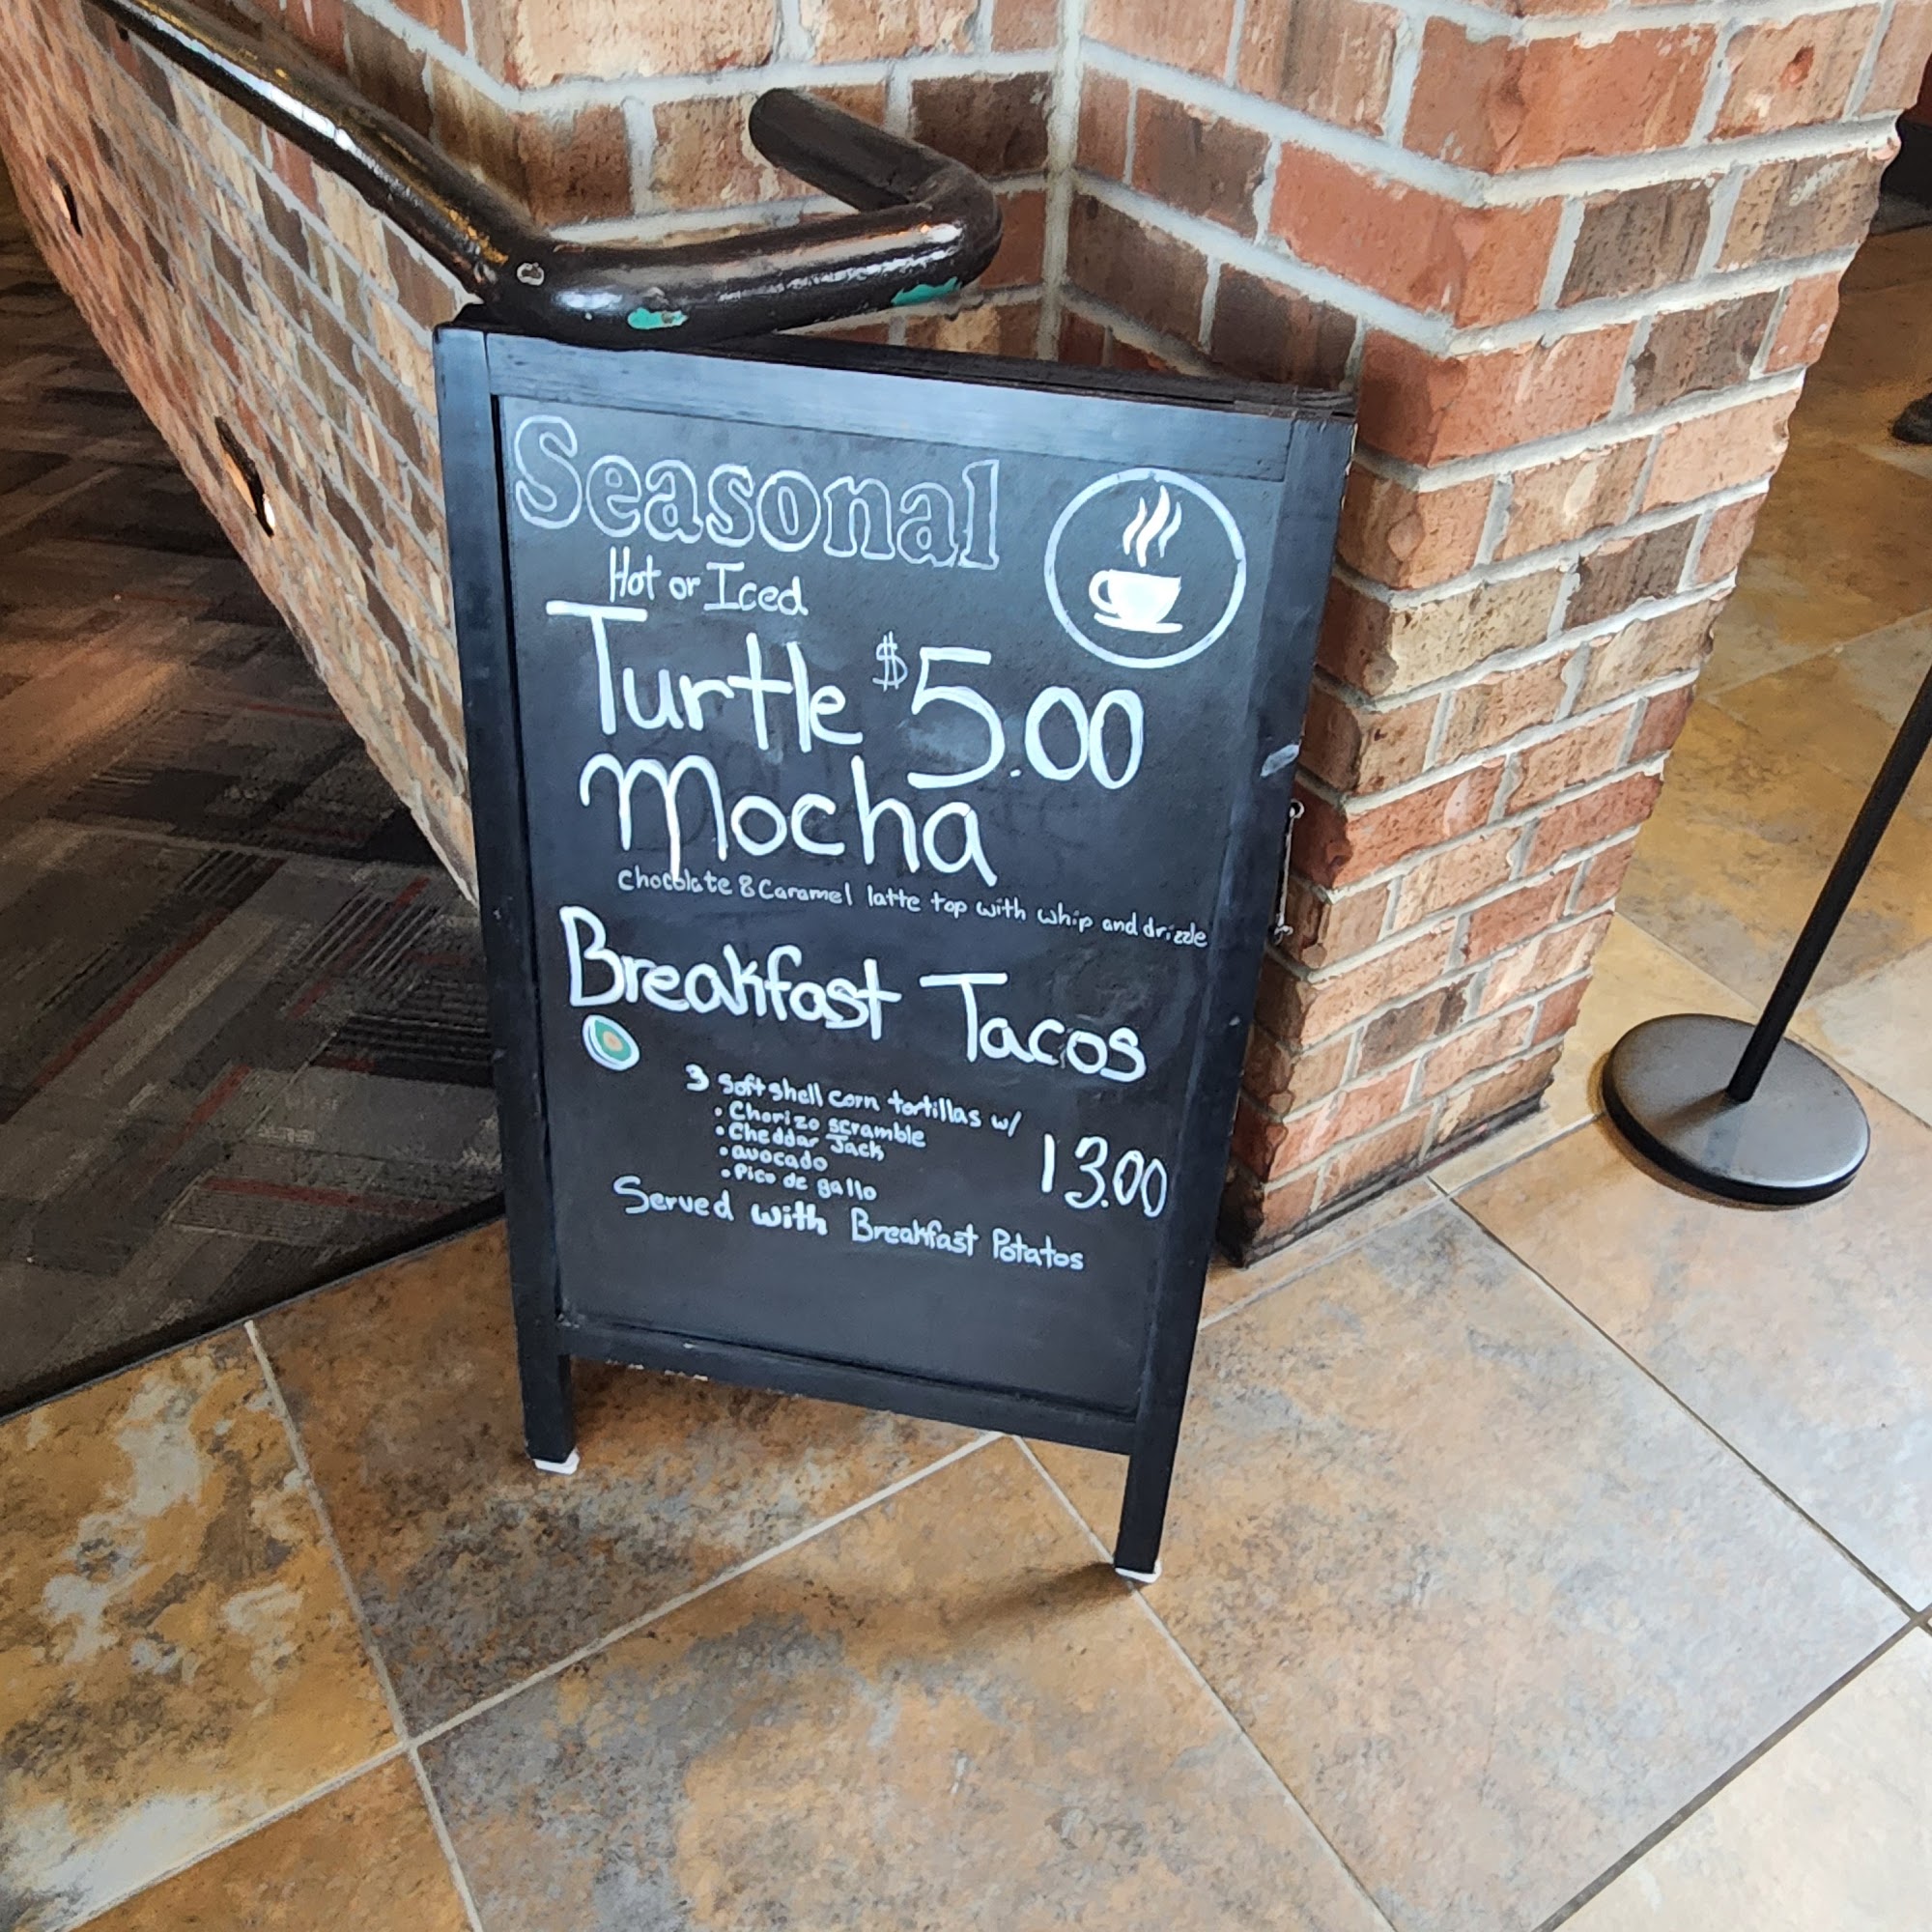 Seasonal
Hot or Iced
Turtle $5.00
Mocha
chocolate & Caramel latte top with whip and drizzle
Breakfast Tacos
3 Soft shell corn tortillas w/
• Chorizo scramble
• Cheddar Jack
• avocado
• Pico de gallo
13.00
Served with Breakfast Potatos